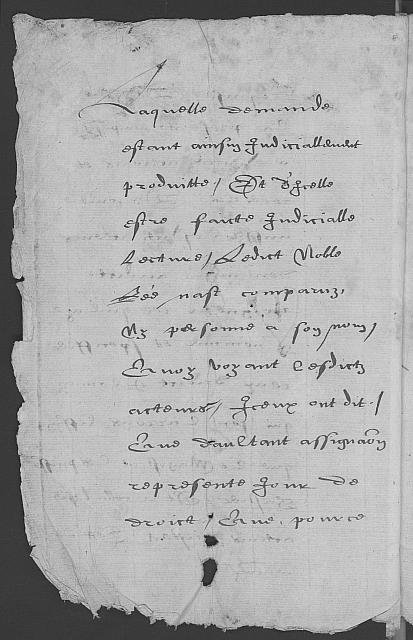 Laquelle demande
estant ainsin Judiciallement
produitte / Et d'Jcelle
estre faicte Judicialle
Lecture / Ledict Noble
nast comparuz,
Ny personne a son nom /
Quoy voyant Lesdictz
acteurs / Jceux ont dit /
Que daultant assignaon
represente Jour de
droict / Que, pource